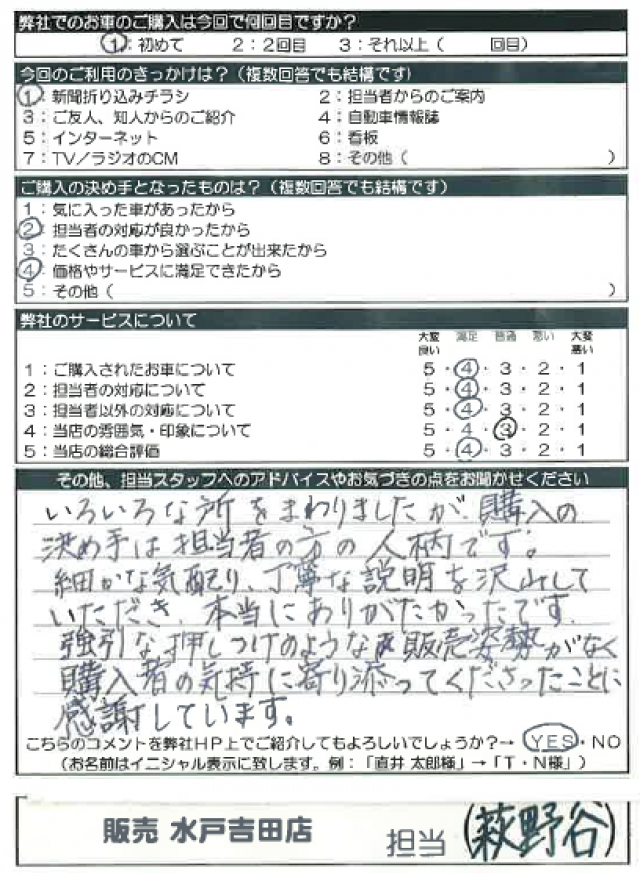 弊社でのお車のご購入は今回で何回目ですか？
1：初めて 2：2回目 3：それ以上（ 回目）
今回のご利用のきっかけは？（複数回答でも結構です）
1：新聞折り込みチラシ 2：担当者からのご案内
3：ご友人、知人からのご紹介 4：自動車情報誌
5：インターネット 6：看板
7：TV／ラジオのCM 8：その他（ ）
ご購入の決め手となったものは？（複数回答でも結構です）
1：気に入った車があったから
2：担当者の対応が良かったから
3：たくさんの車から選ぶことが出来たから
4：価格やサービスに満足できたから
5：その他（ ）
弊社のサービスについて
大変良い 満足 普通 悪い 大変悪い
1：ご購入されたお車について 5・4・3・2・1
2：担当者の対応について 5・4・3・2・1
3：担当者以外の対応について 5・4・3・2・1
4：当店の雰囲気・印象について 5・4・3・2・1
5：当店の総合評価 5・4・3・2・1
その他、担当スタッフへのアドバイスやお気づきの点をお聞かせください
いろいろな所をまわりましたが、購入の
決め手は担当者の方の人柄です。
細かな気配り、丁寧な説明を沢山して
いただき、本当にありがたかったです。
強引な押しつけのような販売姿勢がなく
購入者の気持に寄り添ってくださったことに
感謝しています。
こちらのコメントを弊社HP上でご紹介してもよろしいでしょうか？→ YES・NO
（お名前はイニシャル表示に致します。例：「直井 太郎様」→「T・N様」）
販売 水戸吉田店 担当（萩野谷）